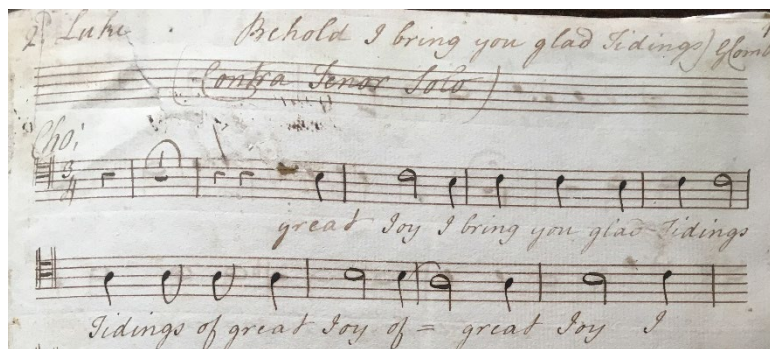 2d Luke. Behold I bring you glad Tidings)
(Contra Tenor Solo)
Cho;
3
4
great Joy I bring you glad Tidings
Tidings of great Joy of = great Joy I